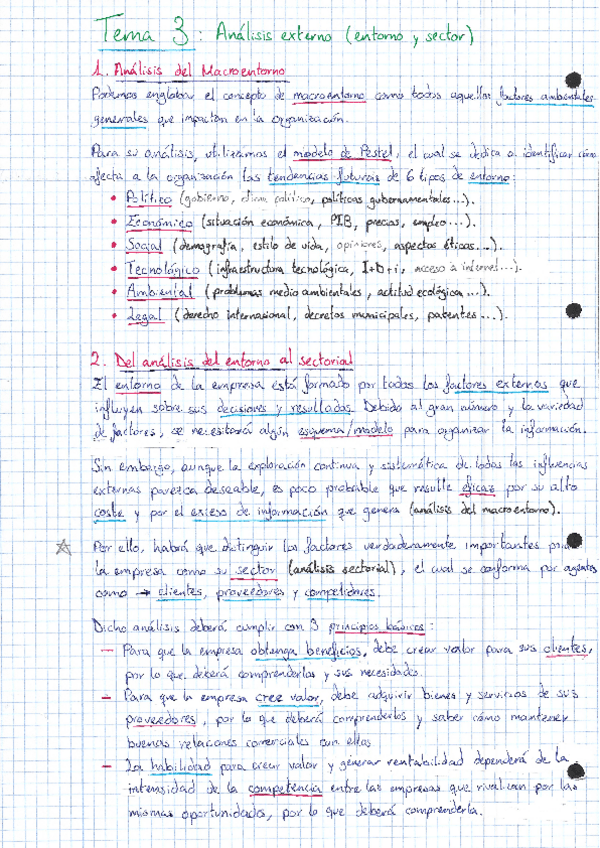 Tema 3: Análisis externo (entorno y sector)
1. Análisis del Macroentorno
Podemos englobar el concepto de macroentorno como todos aquellos factores ambientales
generales que impactan en la organización.
Para su análisis, utilizamos el modelo de Pestel, el cual se dedica a identificar cómo
afecta a la organización las tendencias futuras de 6 tipos de entorno:
• Político (gobierno, política, políticas gubernamentales...).
• Económico (situación económica, PIB, precios, empleo...).
• Social (demografía, estilo de vida, opiniones, aspectos éticos...).
• Tecnológico (infraestructura tecnológica, I+D+i, acceso a internet...).
• Ambiental (problemas medioambientales, actitud ecológica...).
• Legal (derecho internacional, decretos municipales, patentes...).
2. Del análisis del entorno al sectorial
El entorno de la empresa está formado por todos los factores externos que
influyen sobre sus decisiones y resultados. Debido al gran número y la variedad
de factores, se necesitará algún esquema/modelo para organizar la información.
Sin embargo, aunque la exploración continua y sistemática de todas las influencias
externas parezca deseable, es poco probable que resulte eficaz por su alto
coste y por el exceso de información que genera (análisis del macroentorno).
☆ Por ello, habrá que distinguir los factores verdaderamente importantes para
la empresa como su sector (análisis sectorial), el cual se conforma por agentes
como → clientes, proveedores y competidores.
Dicho análisis deberá cumplir con 3 principios básicos:
— Para que la empresa obtenga beneficios, debe crear valor para sus clientes,
por lo que deberá comprenderlos y sus necesidades.
— Para que la empresa cree valor, debe adquirir bienes y servicios de sus
proveedores, por lo que deberá comprenderlos y saber cómo mantener
buenas relaciones comerciales con ellos
— La habilidad para crear valor y generar rentabilidad dependerá de la
intensidad de la competencia entre las empresas que rivalizan por las
mismas oportunidades, por lo que deberá comprenderla.